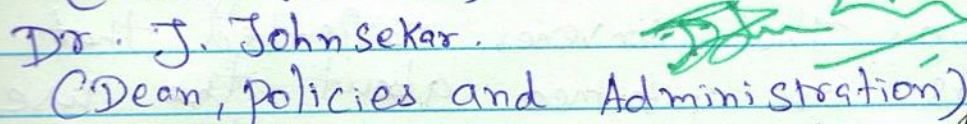 Dr. J. Johnsekar.
(Dean, policies and Administration)